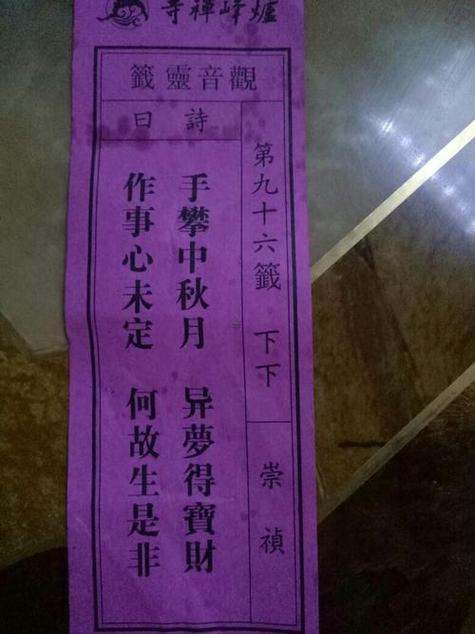 爐峰禪寺
觀音靈籤
第九十六籤 下下
崇禎
詩曰
手攀中秋月 异夢得寶財
作事心未定 何故生是非